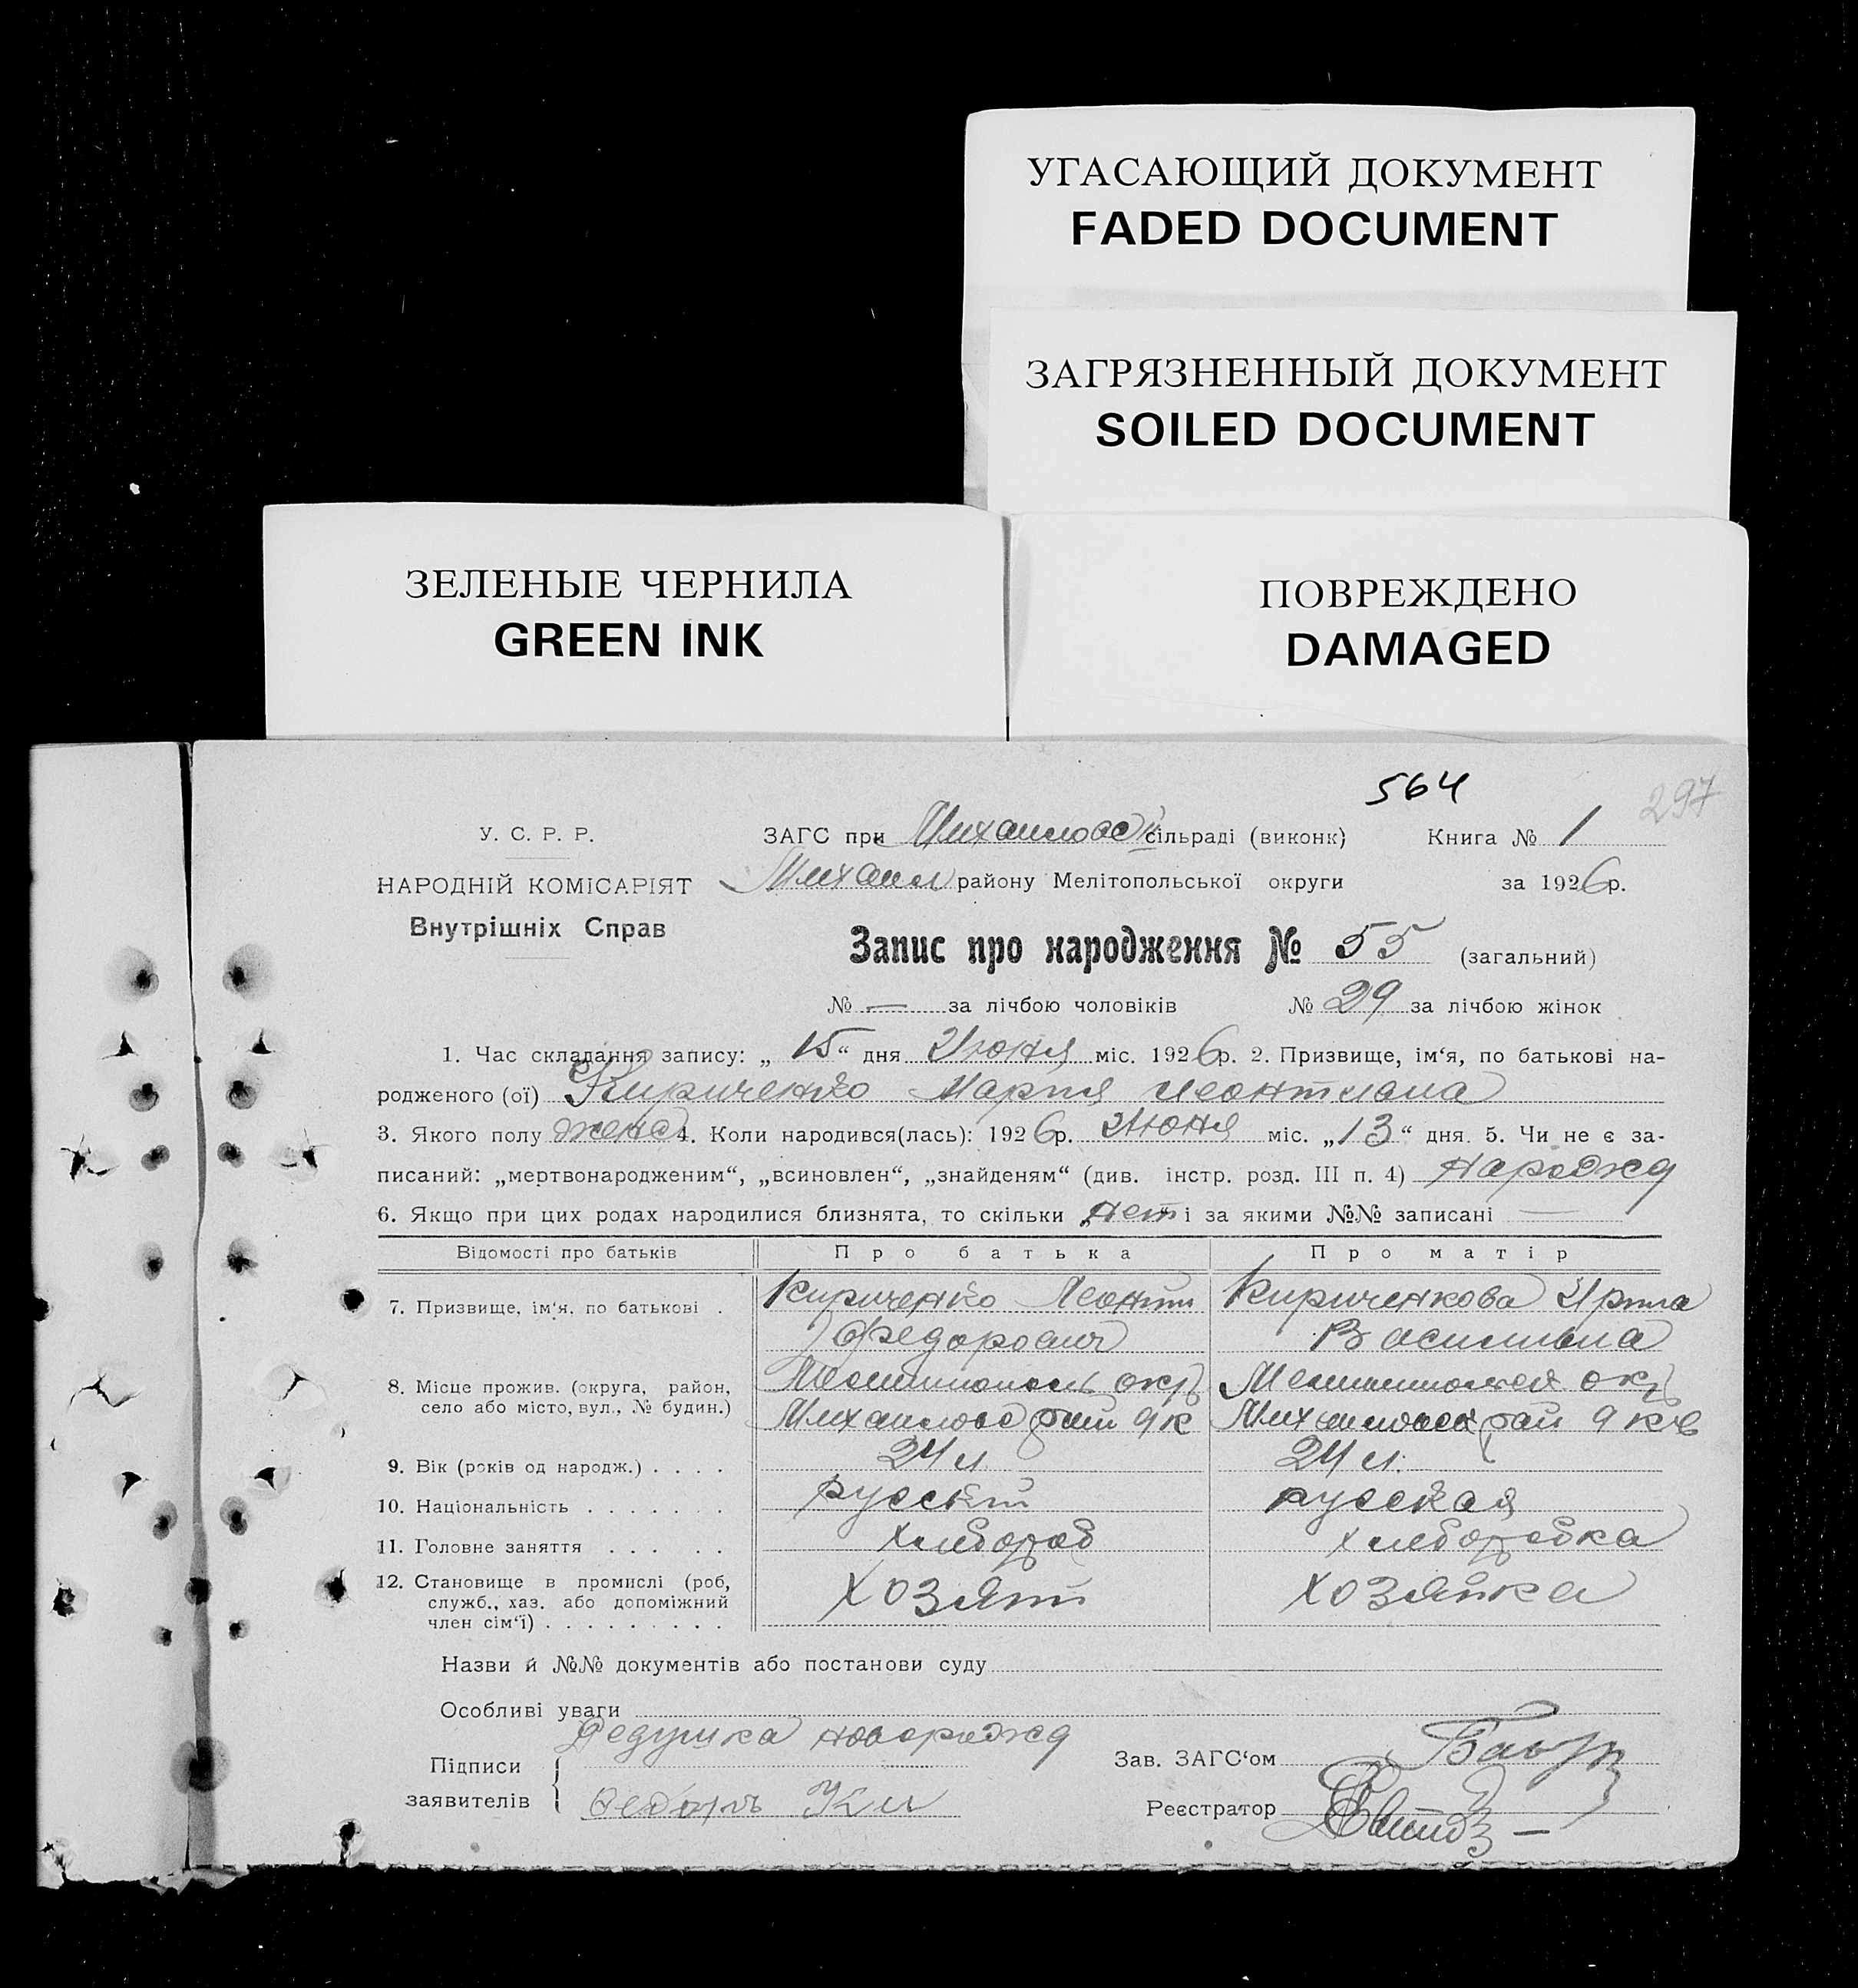 УГАСАЮЩИЙ ДОКУМЕНТ
FADED DOCUMENT
ЗАГРЯЗНЕННЫЙ ДОКУМЕНТ
SOILED DOCUMENT
ЗЕЛЕНЫЕ ЧЕРНИЛА
GREEN INK
ПОВРЕЖДЕНО
DAMAGED
564
297
У. С. Р. Р.
НАРОДНІЙ КОМІСАРІЯТ
Внутрішніх Справ
ЗАГС при Михайловск сільраді (виконк) Книга № 1
Михайл району Мелітопольської округи за 1926р.
Запис про народження № 55 (загальний)
№ — за лічбою чоловіків № 29 за лічбою жінок
1. Час складання запису: „15“ дня Июня міс. 1926р. 2. Призвище, ім‘я, по батькові на-
родженого (ої) Кириченко Мария Леонтиевна
3. Якого полу женс 4. Коли народився(лась): 1926р. Июня міс. „13“ дня. 5. Чи не є за-
писаний: „мертвонародженим“, „всиновлен“, „знайденям“ (див. інстр. розд. III п. 4) Нарожд
6. Якщо при цих родах народилися близнята, то скільки нет і за якими №№ записані —
Відомості про батьків Про батька Про матір
7. Призвище, ім‘я. по батькові . Кириченко Леонтий Кириченкова Ирина
Федорович Васильевна
8. Місце прожив. (округа, район, Мелитополь окр Мелитополск окр
село або місто, вул., № будин.) Михайловс рай 9 к Михайловск рай 9 кв
9. Вік (років од народж.) . . . . 24 л 24 л.
10. Національність . . . . . . . русский русская
11. Головне заняття . . . . . хлебороб хлеборобка
12. Становище в промислі (роб, хозяин хозяйка
служб., хаз. або допоміжний
член сім‘ї) . . . . . . . . .
Назви й №№ документів або постанови суду
Особливі уваги
Дедушка новорожд
Підписи
заявителів
Зав. ЗАГС‘ом
Реєстратор